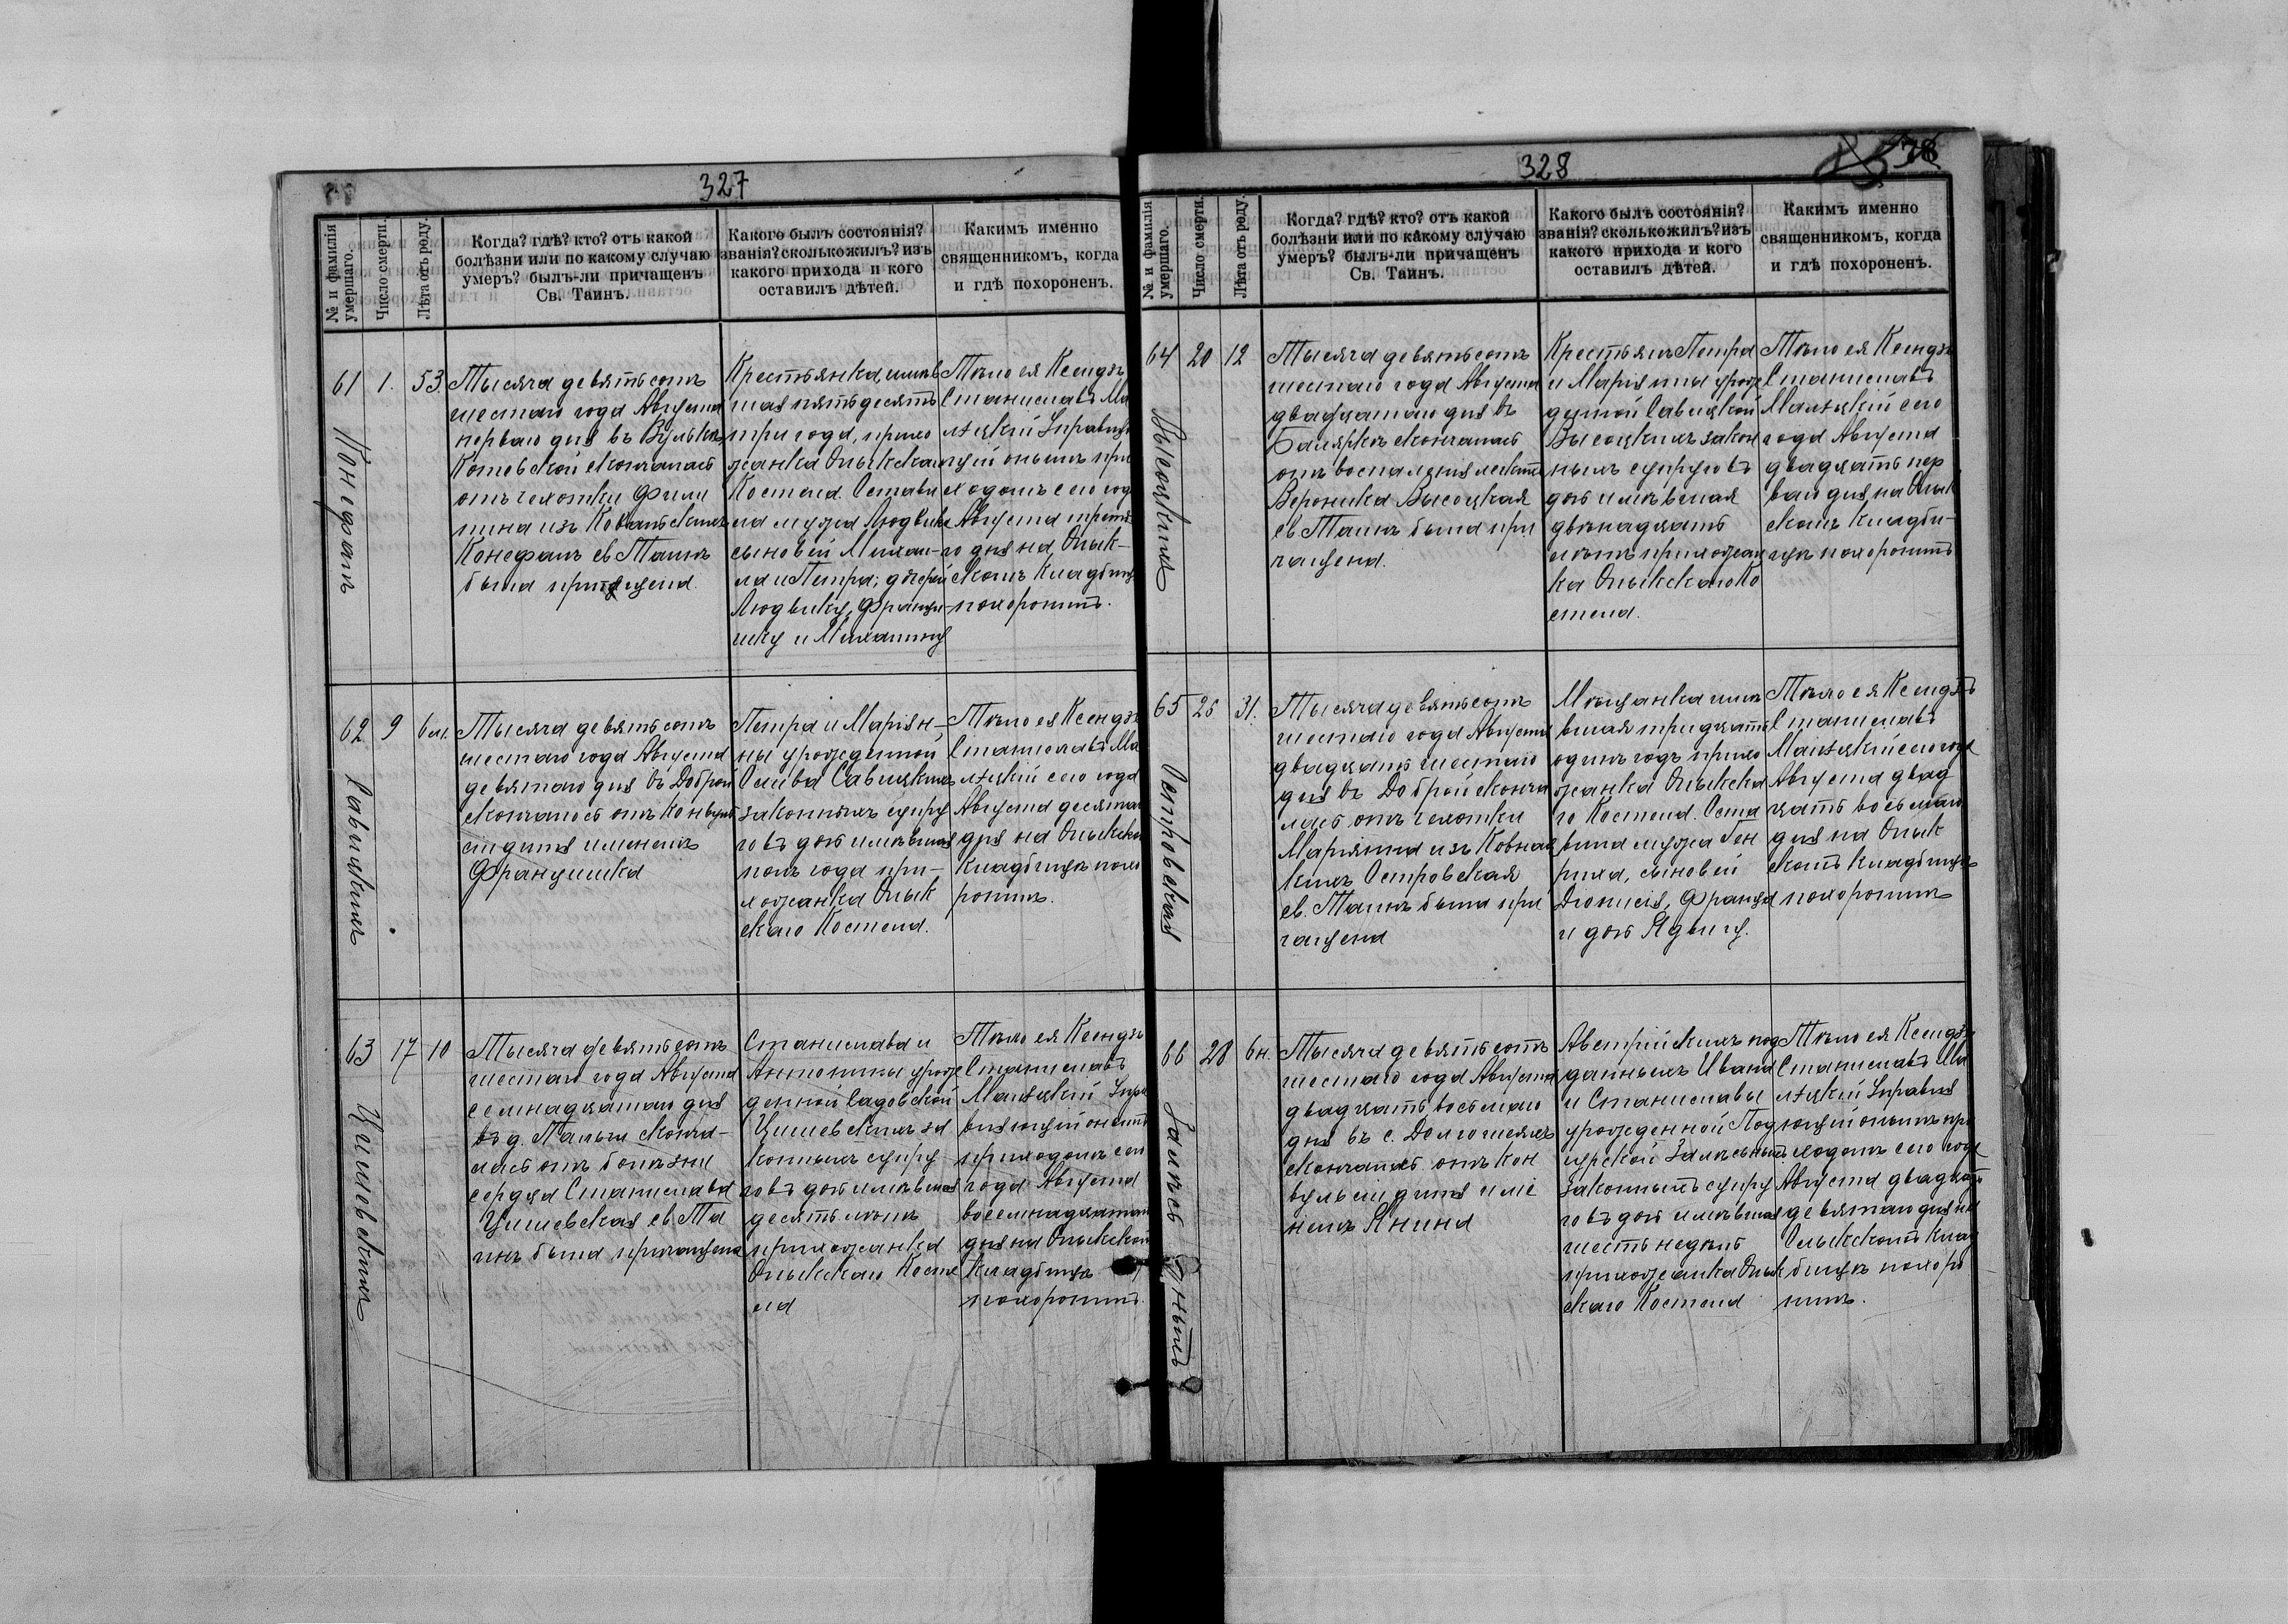 327
№ и фамилія
умершаго.
Число смерти.
Лѣта отъ роду.
Когда? гдѣ? кто? отъ какой
болѣзни или по какому случаю
умеръ? былъ-ли причащенъ
Св. Таинъ.
Какого былъ состоянія?
званія? сколько жилъ? изъ
какого прихода и кого
оставилъ дѣтей.
Какимъ именно
священникомъ, когда
и гдѣ похороненъ.
61
Конефалъ
1.
53.
Тысяча девятьсотъ
шестаго года Августа
перваго дня въ Вулькѣ
Котовской скончалась
отъ чахотки Фили
пина изъ
Конефалъ св. Таинъ
была причащена.
Крестьянка, имѣв
шая пятьдесятъ
три года, прихо
жанка Олыкскаго
Костела. Остави
ла мужа Людвика
сыновей Михаи-
ла и Петра; дочерей
Людвику, Франци-
шку и Михалину
Тѣло ея Ксендзъ
Станиславъ Ма
лѣцкій Управляю
щій онымъ при
ходомъ сего года
Августа третья
го дня на Олык-
скомъ кладбищѣ
похоронилъ.
62
Савицкихъ
9
6 м.
Тысяча девятьсотъ
шестаго года Августа
девятаго дня въ Доброй
скончалось отъ конвуль
сіи дитя именемъ
Францишка
Петра и Маріян-
ны урожденной
Слива Савицкихъ
законныхъ супру
говъ дочь имѣвшая
полъ года при-
хожанка Олык
скаго Костела.
Тѣло ея Ксендзъ
Станиславъ Ма
лѣцкій сего года
Августа десятаго
дня на Олыкском
кладбищѣ похо
ронилъ.
63
Цишевскихъ
17
10
Тысяча девятьсотъ
шестаго года Августа
семнадцатаго дня
въ д. Пальчи сконча-
лась отъ болѣзни
сердца Станислава
Цишевская св. Та
инъ была причащена
Станислава и
Антонины урож
денной Садовской
Цишевскихъ за
конныхъ супру
говъ дочь имѣвшая
десять лѣтъ
прихожанка
Олыкскаго Косте
ла
Тѣло ея Ксендзъ
Станиславъ
Малѣцкій Упра
вляющій онымъ
приходомъ сего
года Августа
восемнадцатаго
дня на Олыкском
кладбищѣ
похоронилъ.
328
78
№ и фамилія
умершаго.
Число смерти.
Лѣта отъ роду.
Когда? гдѣ? кто? отъ какой
болѣзни или по какому случаю
умеръ? былъ-ли причащенъ
Св. Таинъ.
Какого былъ состоянія?
званія? сколько жилъ? изъ
какого прихода и кого
оставилъ дѣтей.
Какимъ именно
священникомъ, когда
и гдѣ похороненъ.
64
Высоцкихъ
20
12
Тысяча девятьсотъ
шестаго года Августа
двадцатаго дня въ
скончалась
отъ воспаленія легкихъ
Вероника Высоцкая
св. Таинъ была при
чащена.
Крестьянъ Петра
и Маріянны урож
денной Савицкой
Высоцкихъ закон
ныхъ супруговъ
дочь имѣвшая
двѣнадцать
лѣтъ прихожан
ка Олыкскаго Ко
стела.
Тѣло ея Ксендзъ
Станиславъ
Малѣцкій сего
года Августа
двадцать пер
ваго дня на Олык
скомъ кладби-
щѣ похоронилъ
65
Островская
26
31.
Тысяча девятьсотъ
шестаго года Августа
двадцать шестаго
дня въ Доброй сконча
лась отъ чахотки
Маріянна изъ Ковнац
кихъ Островская
св. Таинъ была при
чащена
Мѣщанка имѣ
вшая тридцать
одинъ годъ прихо
жанка Олыкска
го Костела. Оста
вила мужа Ген
риха, сыновей
Діонисія, Франца
и дочь Ядвигу.
Тѣло ея Ксендзъ
Станиславъ
Малѣцкій сего года
Августа двад
цать восьмаго
дня на Олык
скомъ кладбищѣ
похоронилъ
66
Залѣсныхъ
28
6 н.
Тысяча девятьсотъ
шестаго года Августа
двадцать восьмаго
дня въ с. Долгошеяхъ
скончалась отъ кон
вульсіи дитя име
немъ Янина
Австрійскихъ под
данныхъ Ивана
и Станиславы
урожденной Под
гурской Залѣсныхъ
законныхъ супру
говъ дочь имѣвшая
шесть недѣль
прихожанка Олык
скаго Костела
Тѣло ея Ксендзъ
Станиславъ Ма
лѣцкій Управля
ющій онымъ при
ходомъ сего года
Августа двадцать
девятаго дня на
Олыкскомъ клад
бищѣ похоро
нилъ.